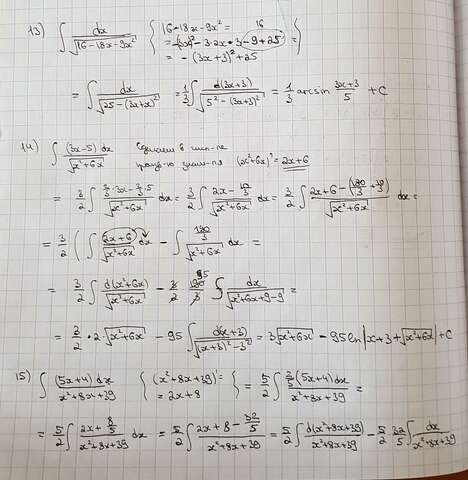 13) ∫ dx / √(16-18x-9x²) { 16-18x-9x² = 16
= -(3x)² - 2·3x·3 - 9 + 25 = }
= -(3x+3)² + 25
= ∫ dx / √(25-(3x+3)²) = 1/3 ∫ d(3x+3) / √(5²-(3x+3)²) = 1/3 arcsin (3x+3)/5 + C
14) ∫ (3x-5) dx / √(x²+6x) Сделаем в числ-ле
произ-ю знам-ля (x²+6x)' = 2x+6
= 3/2 ∫ (2/3·3x - 2/3·5) / √(x²+6x) dx = 3/2 ∫ (2x - 10/3) / √(x²+6x) dx = 3/2 ∫ (2x+6-(180/3+10/3)) / √(x²+6x) dx =
= 3/2 ( ∫ (2x+6) / √(x²+6x) dx - ∫ (190/3) / √(x²+6x) dx =
= 3/2 ∫ d(x²+6x) / √(x²+6x) - 3/2 190/3 95 ∫ dx / √(x²+6x+9-9) =
= 3/2 · 2 √(x²+6x) - 95 ∫ d(x+3) / √((x+3)²-3²) = 3√(x²+6x) - 95 ln|x+3+√(x²+6x)| + C
15) ∫ (5x+4) dx / (x²+8x+39) { (x²+8x+39)' =
= 2x+8 } = 5/2 ∫ 2/5 (5x+4) dx / (x²+8x+39) =
= 5/2 ∫ (2x + 8/5) / (x²+8x+39) dx = 5/2 ∫ (2x+8 - 32/5) / (x²+8x+39) = 5/2 ∫ d(x²+8x+39) / (x²+8x+39) - 5/2 32/5 ∫ dx / (x²+8x+39)